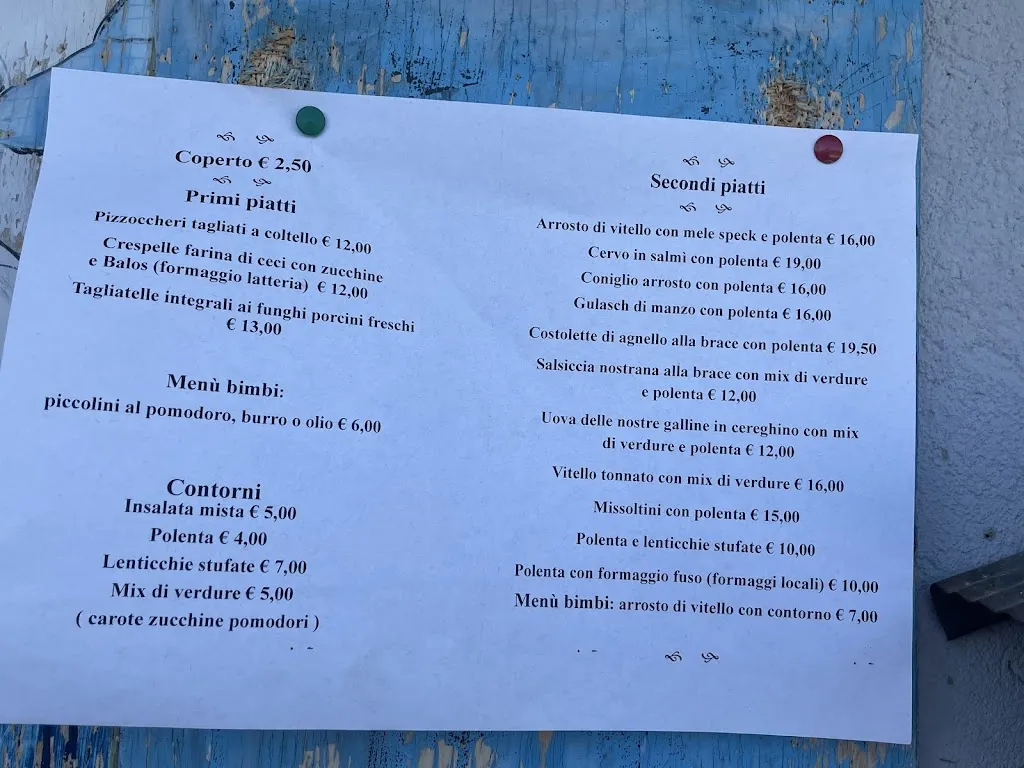 Coperto € 2,50
Primi piatti
Pizzoccheri tagliati a coltello € 12,00
Crespelle farina di ceci con zucchine
e Balos (formaggio latteria) € 12,00
Tagliatelle integrali ai funghi porcini freschi
€ 13,00
Menù bimbi:
piccolini al pomodoro, burro o olio € 6,00
Contorni
Insalata mista € 5,00
Polenta € 4,00
Lenticchie stufate € 7,00
Mix di verdure € 5,00
( carote zucchine pomodori )
Secondi piatti
Arrosto di vitello con mele speck e polenta € 16,00
Cervo in salmì con polenta € 19,00
Coniglio arrosto con polenta € 16,00
Gulasch di manzo con polenta € 16,00
Costolette di agnello alla brace con polenta € 19,50
Salsiccia nostrana alla brace con mix di verdure
e polenta € 12,00
Uova delle nostre galline in cereghino con mix
di verdure e polenta € 12,00
Vitello tonnato con mix di verdure € 16,00
Missoltini con polenta € 15,00
Polenta e lenticchie stufate € 10,00
Polenta con formaggio fuso (formaggi locali) € 10,00
Menù bimbi: arrosto di vitello con contorno € 7,00